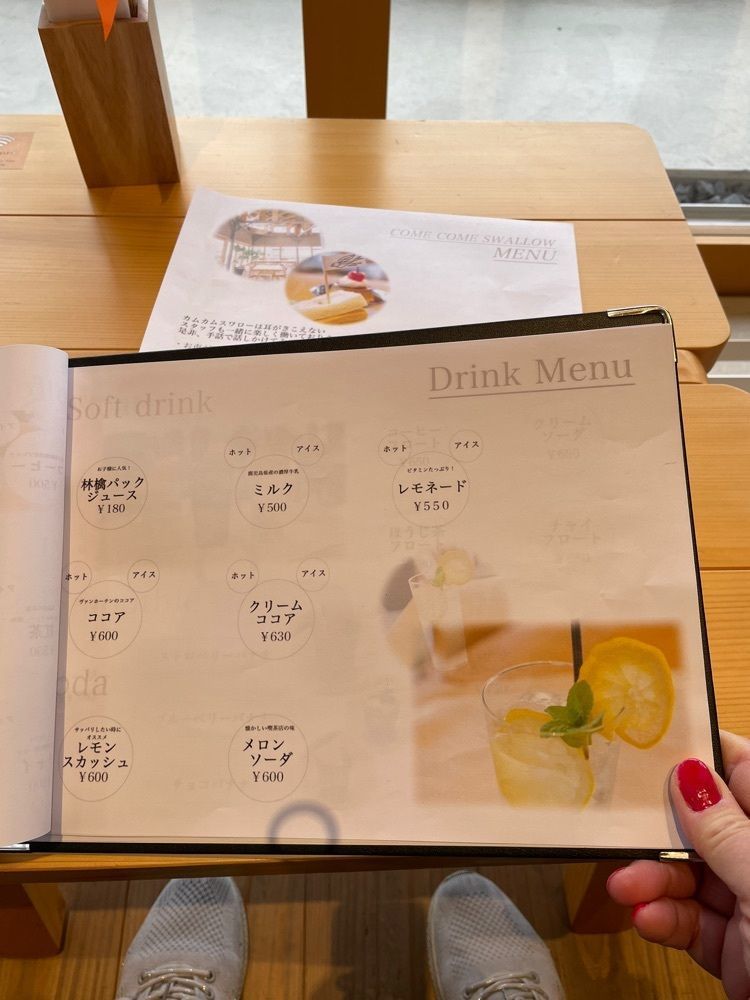 COME COME SWALLOW
MENU
カムカムスワローは耳がきこえない
スタッフも一緒に楽しく働いており
是非、手話で話しかけて
Drink Menu
Soft drink
お子様に人気！
林檎パック
ジュース
¥180
ホット
アイス
鹿児島県産の濃厚牛乳
ミルク
¥500
ホット
アイス
ビタミンたっぷり！
レモネード
¥550
ホット
アイス
ヴァンホーテンのココア
ココア
¥600
ホット
アイス
クリーム
ココア
¥630
oda
サッパリしたい時に
オススメ
レモン
スカッシュ
¥600
懐かしい喫茶店の味
メロン
ソーダ
¥600